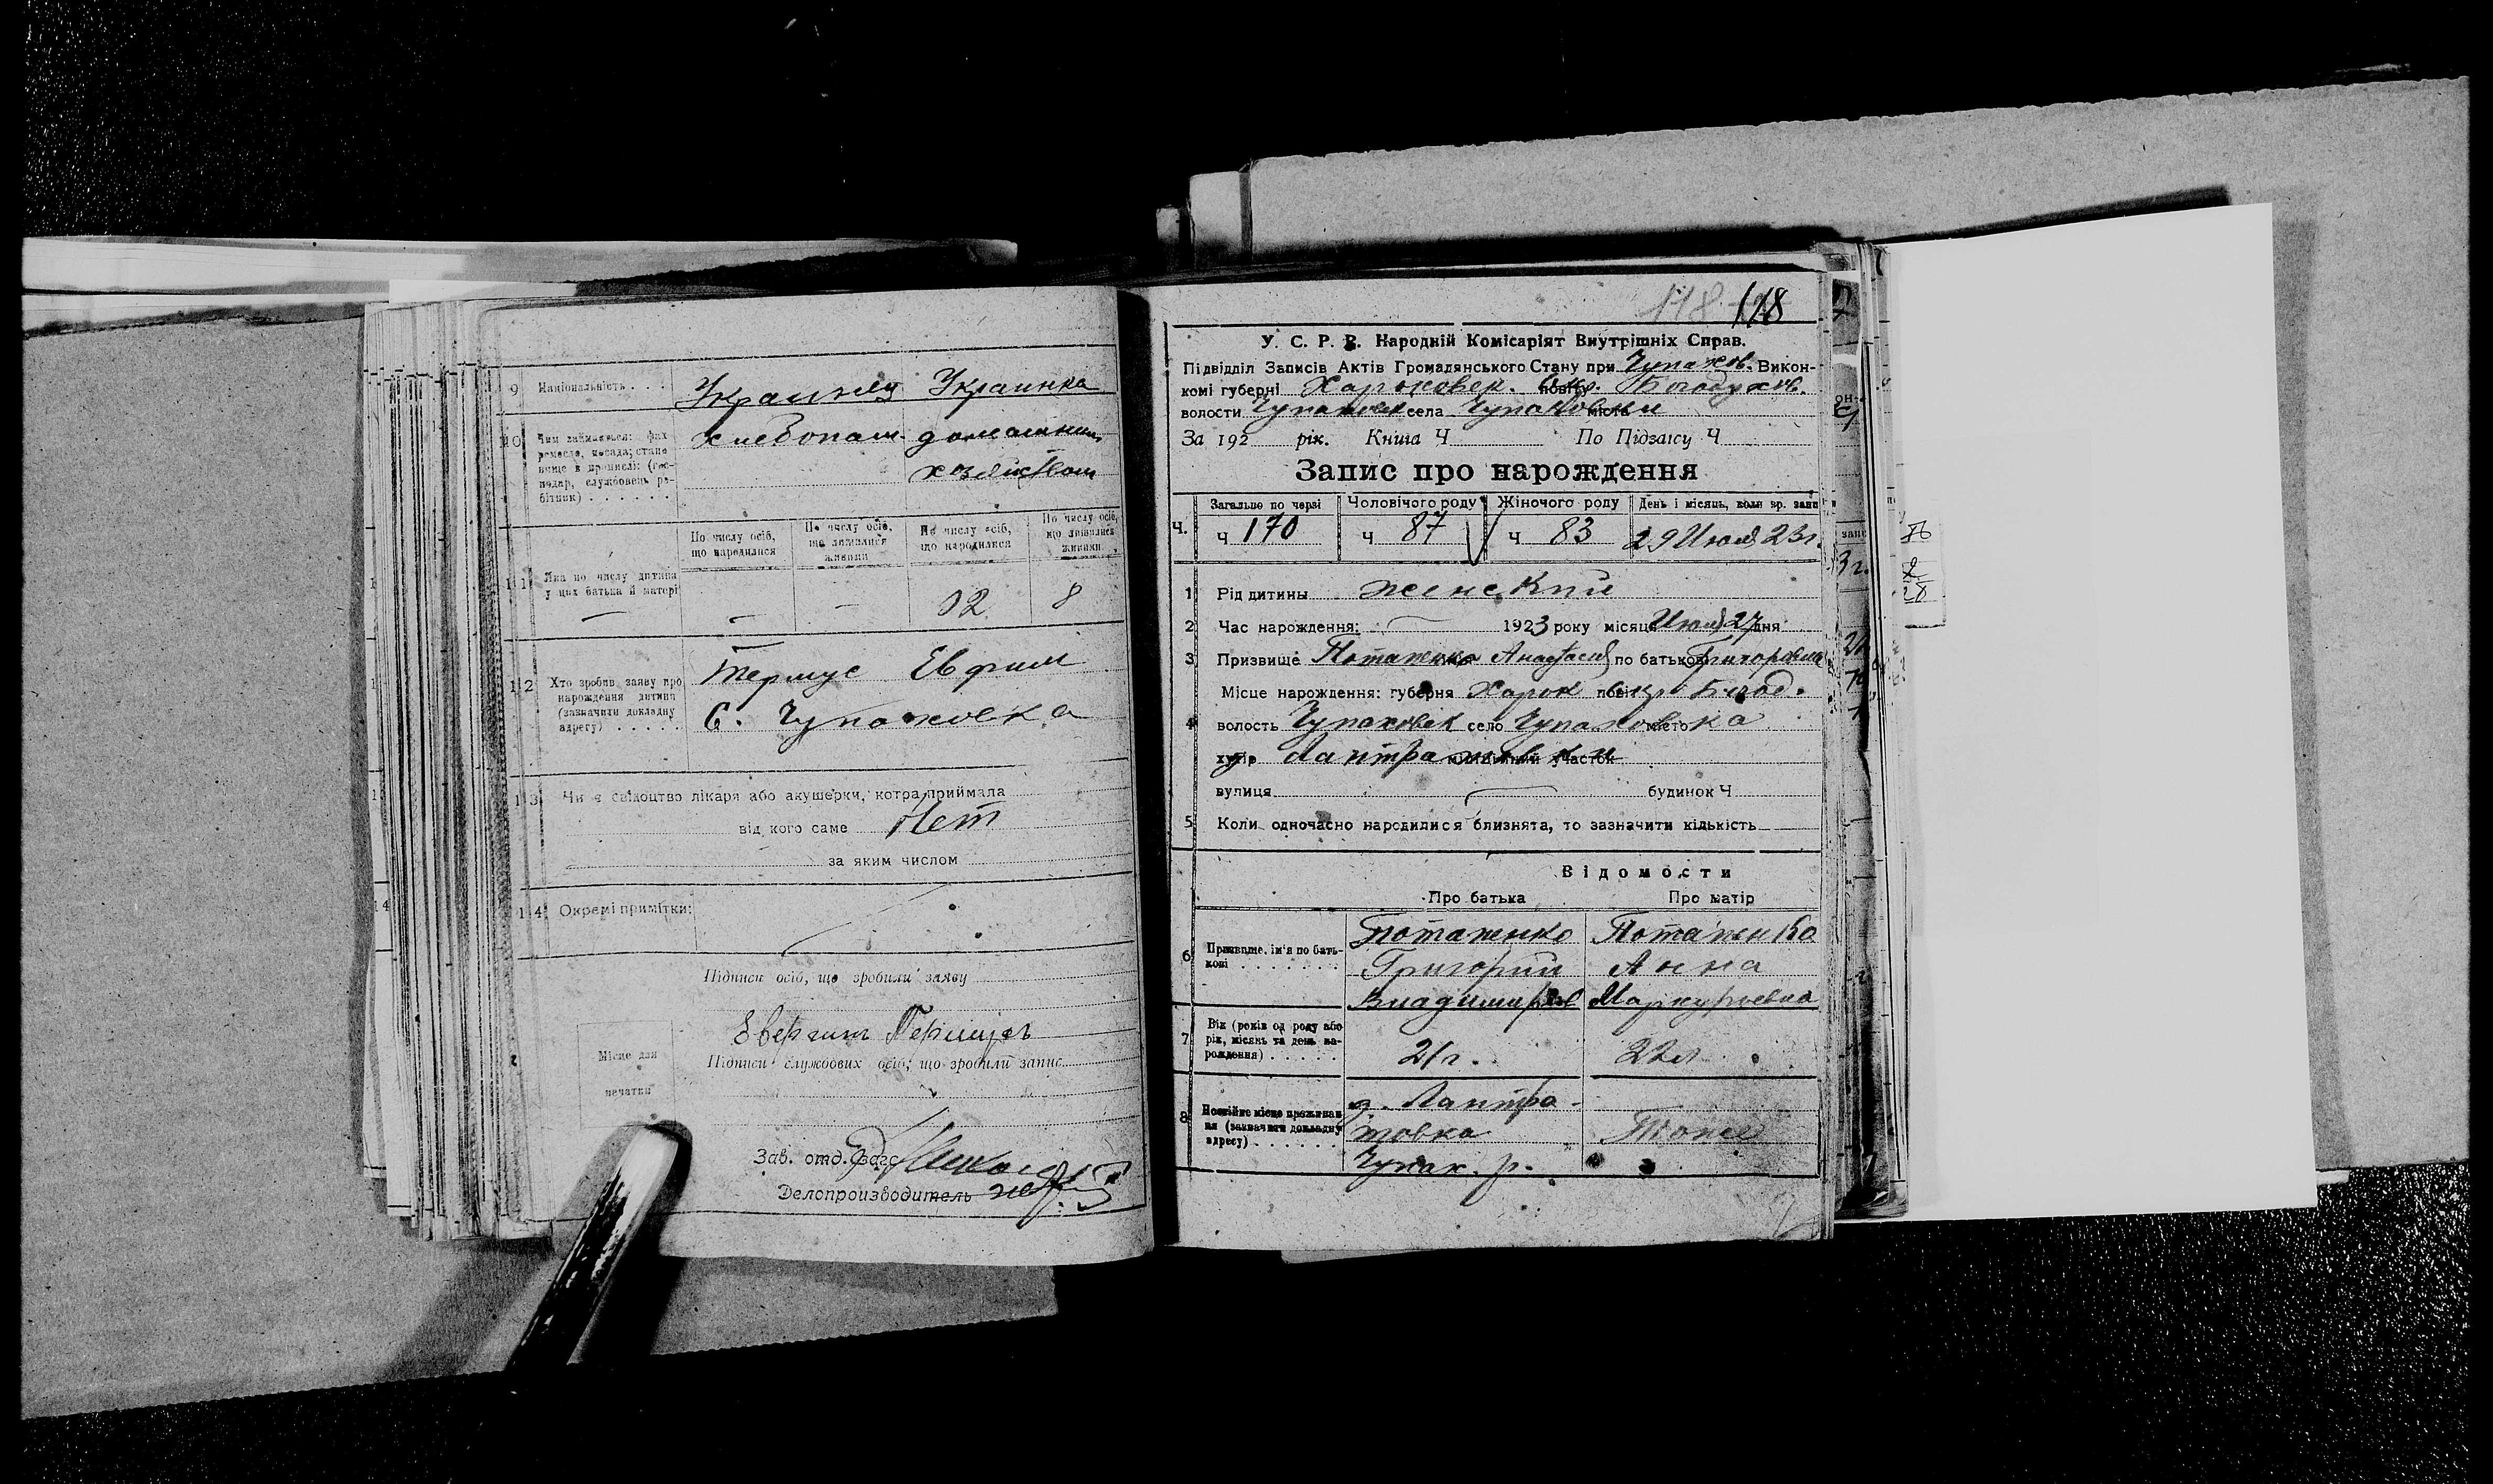 9 Національність . . . Украинец Украинка
10 Чим займається: фах хлебопаш. домашним
ремесло, посада; стано хозяйством
вище в промислі: (гос-
подар, службовець ро-
бітник) . . . . . .
По числу осіб, що народилися
По числу осіб, що лишилися живими
По числу осіб, що народилися
По числу осіб, що лишилися живими
11 Яка по числу дитина
у цих батька й матері
— — — 8
12 Хто зробив заяву про
нарождення дитини
(зазначити докладну
адресу) . . . . .
Евфим
С. Чупаховка
13 Чи є свідоцтво лікаря або акушерки, котра приймала
від кого саме Нет
за яким числом
14 Окремі примітки:
Підписи осіб, що зробили заяву
Місце для
печатки
Підписи службових осіб, що зробили запис
Зав. отд. Загс
Делопроизводитель
118 118
У. С. Р. Р. Народній Комісаріят Внутрішніх Справ.
Підвідділ Записів Актів Громадянського Стану при Чупахов. Викон-
комі губерні Харьковск. повіту Окр. Богодухов.
волости Чупаховск села Чупаховки міста
За 192 рік. Книга Ч По Підзаґсу Ч
Запис про нарождення
Загально по черзі Чоловічого роду Жіночого роду День і місяць, коли зр. запи
Ч. Ч 170 Ч 87 Ч 83 29 Июля 23 г.
1 Рід дитини женский
2 Час нарождення: 1923 року місяця Июля 27 дня
3 Призвище Потапенко Анастасия по батькові Григорьевна
Місце нарождення: губерня Харьк повіт окр Богод.
4 волость Чупаховск село Чупаховка місто
хутір д Лантратовки
вулиця будинок Ч
5 Коли одночасно народилися близнята, то зазначити кількість
Відомости
Про батька Про матір
6 Призвище, ім'я по бать-
кові . . . . . . .
Потапенко Потапенко
Григорий Анна
Владимиров Маркуровна
7 Вік (років од роду або
рік, місяць та день на-
рождення) . . . . .
21 г. 22 л
8 Постійне місце проживан
ня (зазначити докладну
адресу) . . . . . .
д. Лантра-
товка Тоже
Чупах. р.